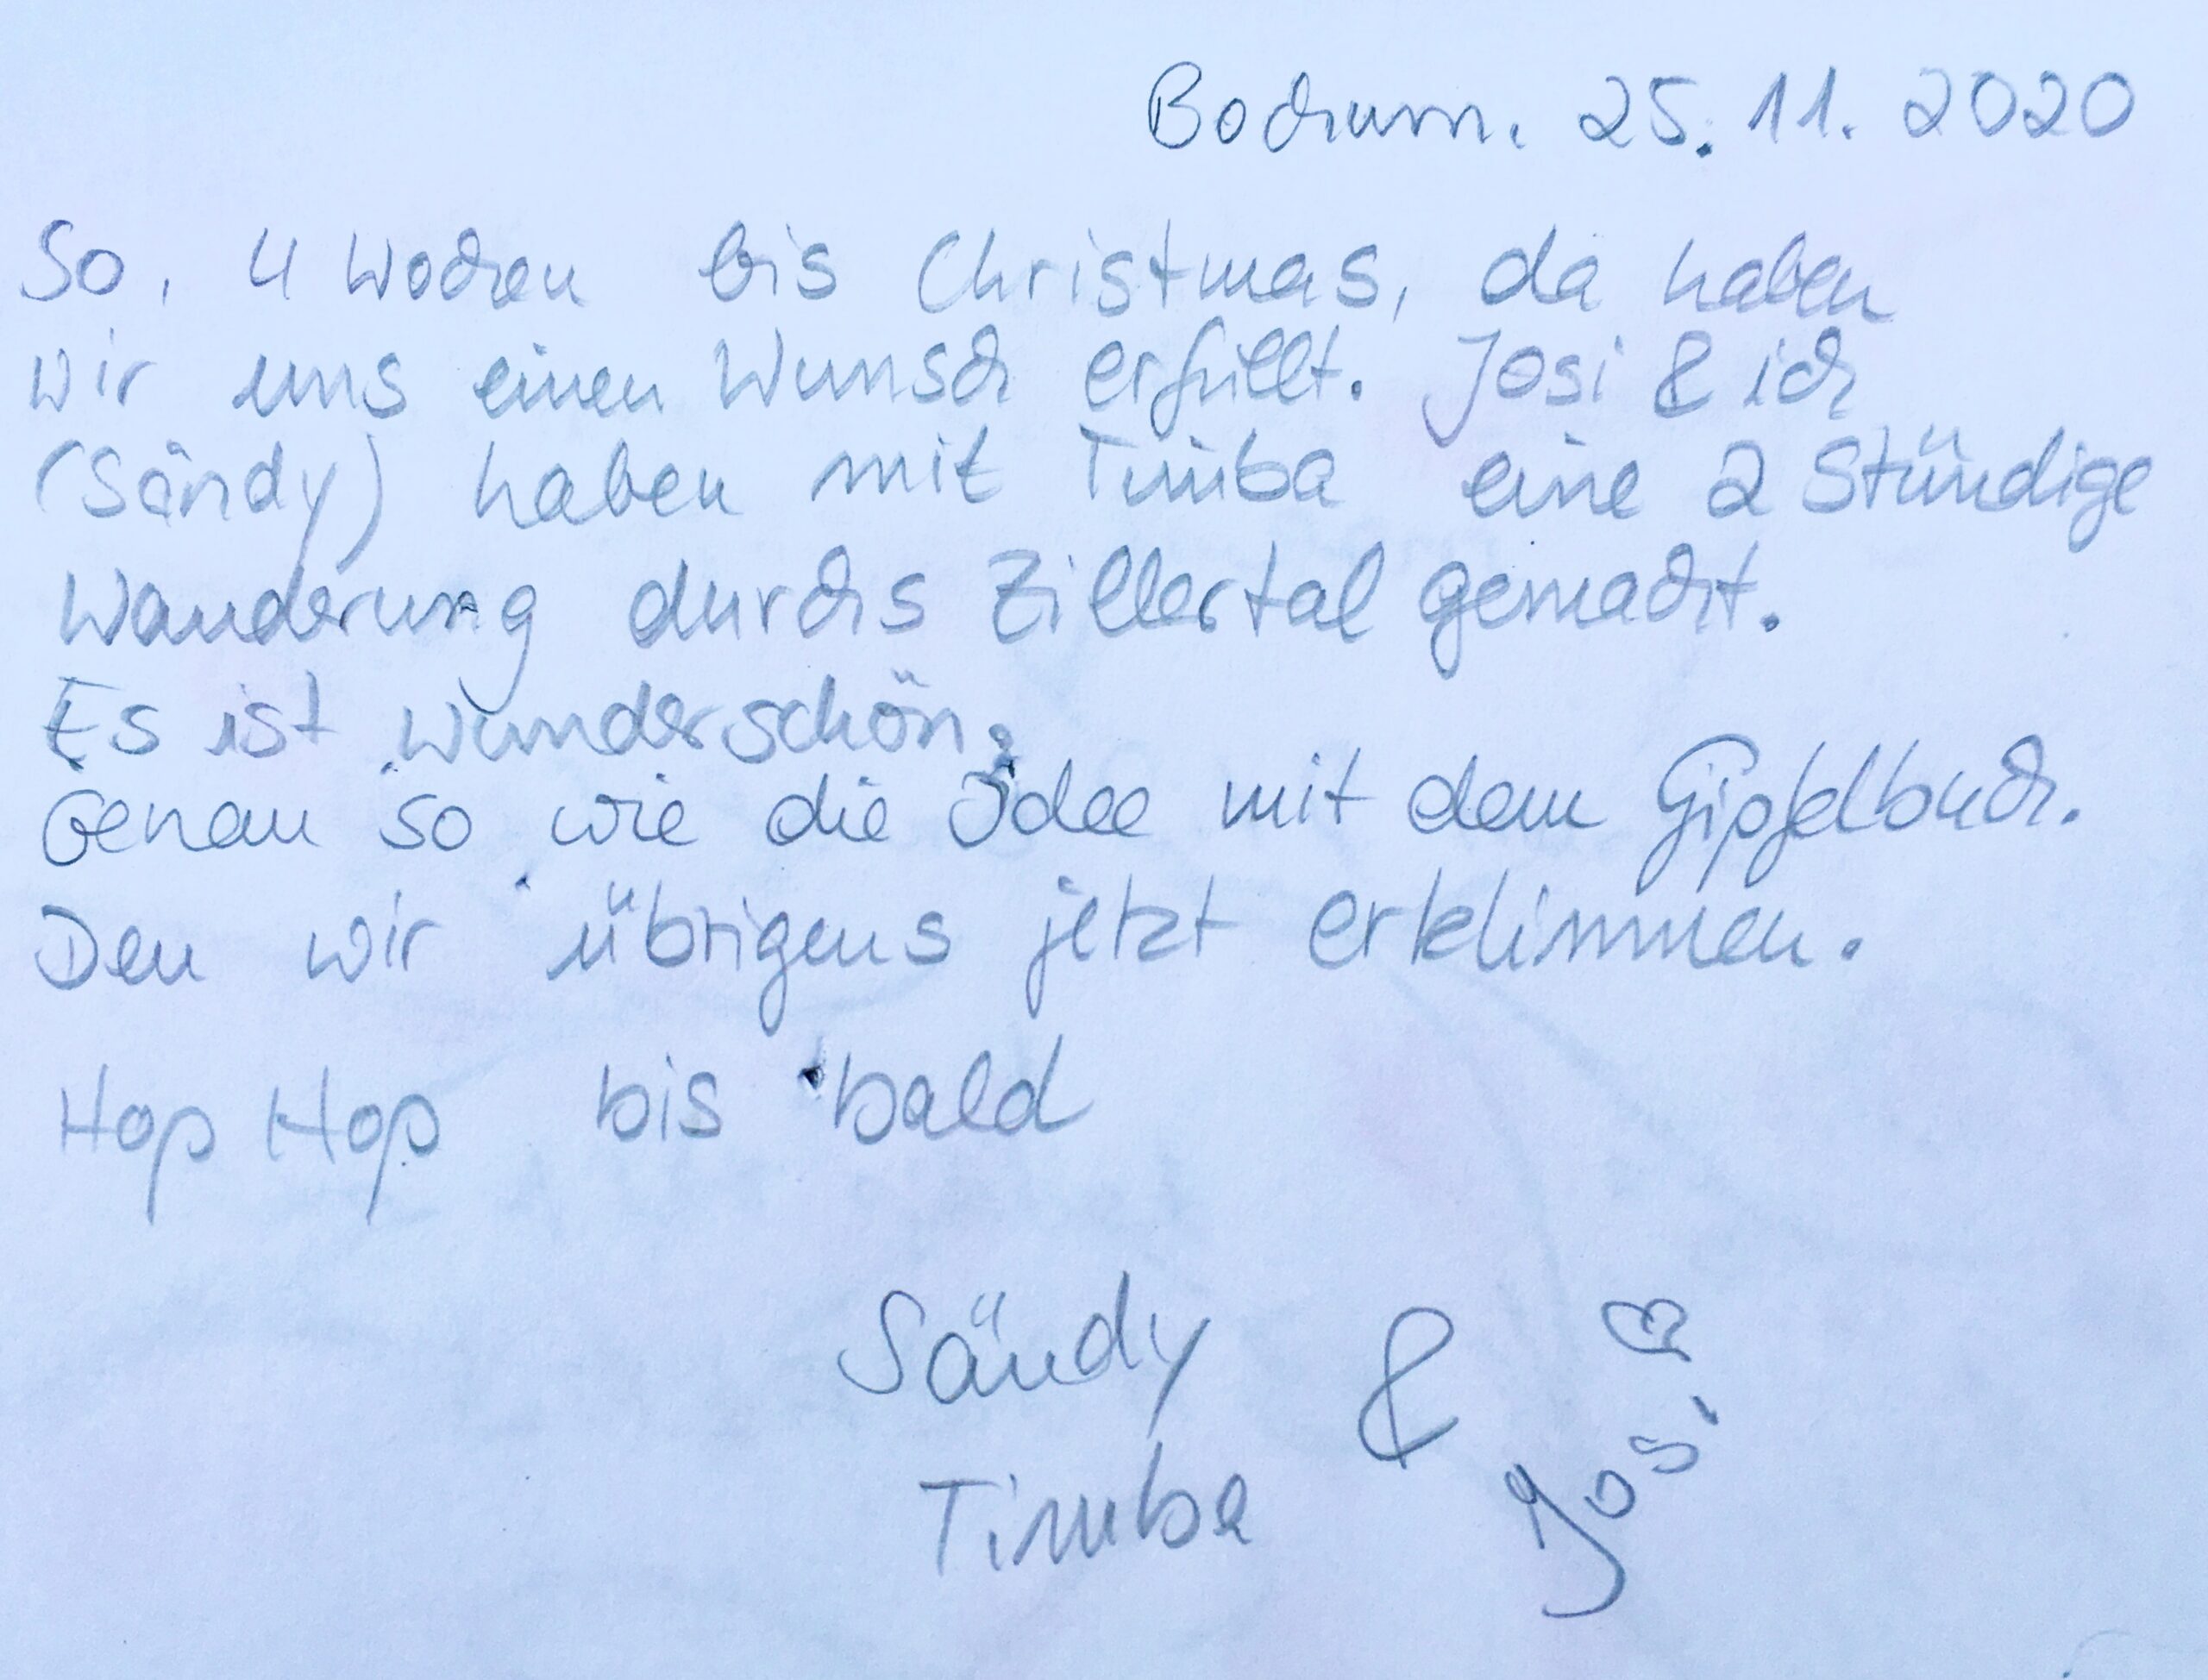 Bochum. 25. 11. 2020
So, 4 Wochen bis Christmas, da haben
wir uns einen Wunsch erfüllt. Josi & ich
(Sändy) haben mit Timba eine 2 Stündige
Wanderung durchs Zillertal gemacht.
Es ist wunderschön.
Genau so wie die Idee mit dem Gipfelbuch.
Den wir übrigens jetzt erklimmen.
Hop Hop bis bald
Sändy & Josi
Timba